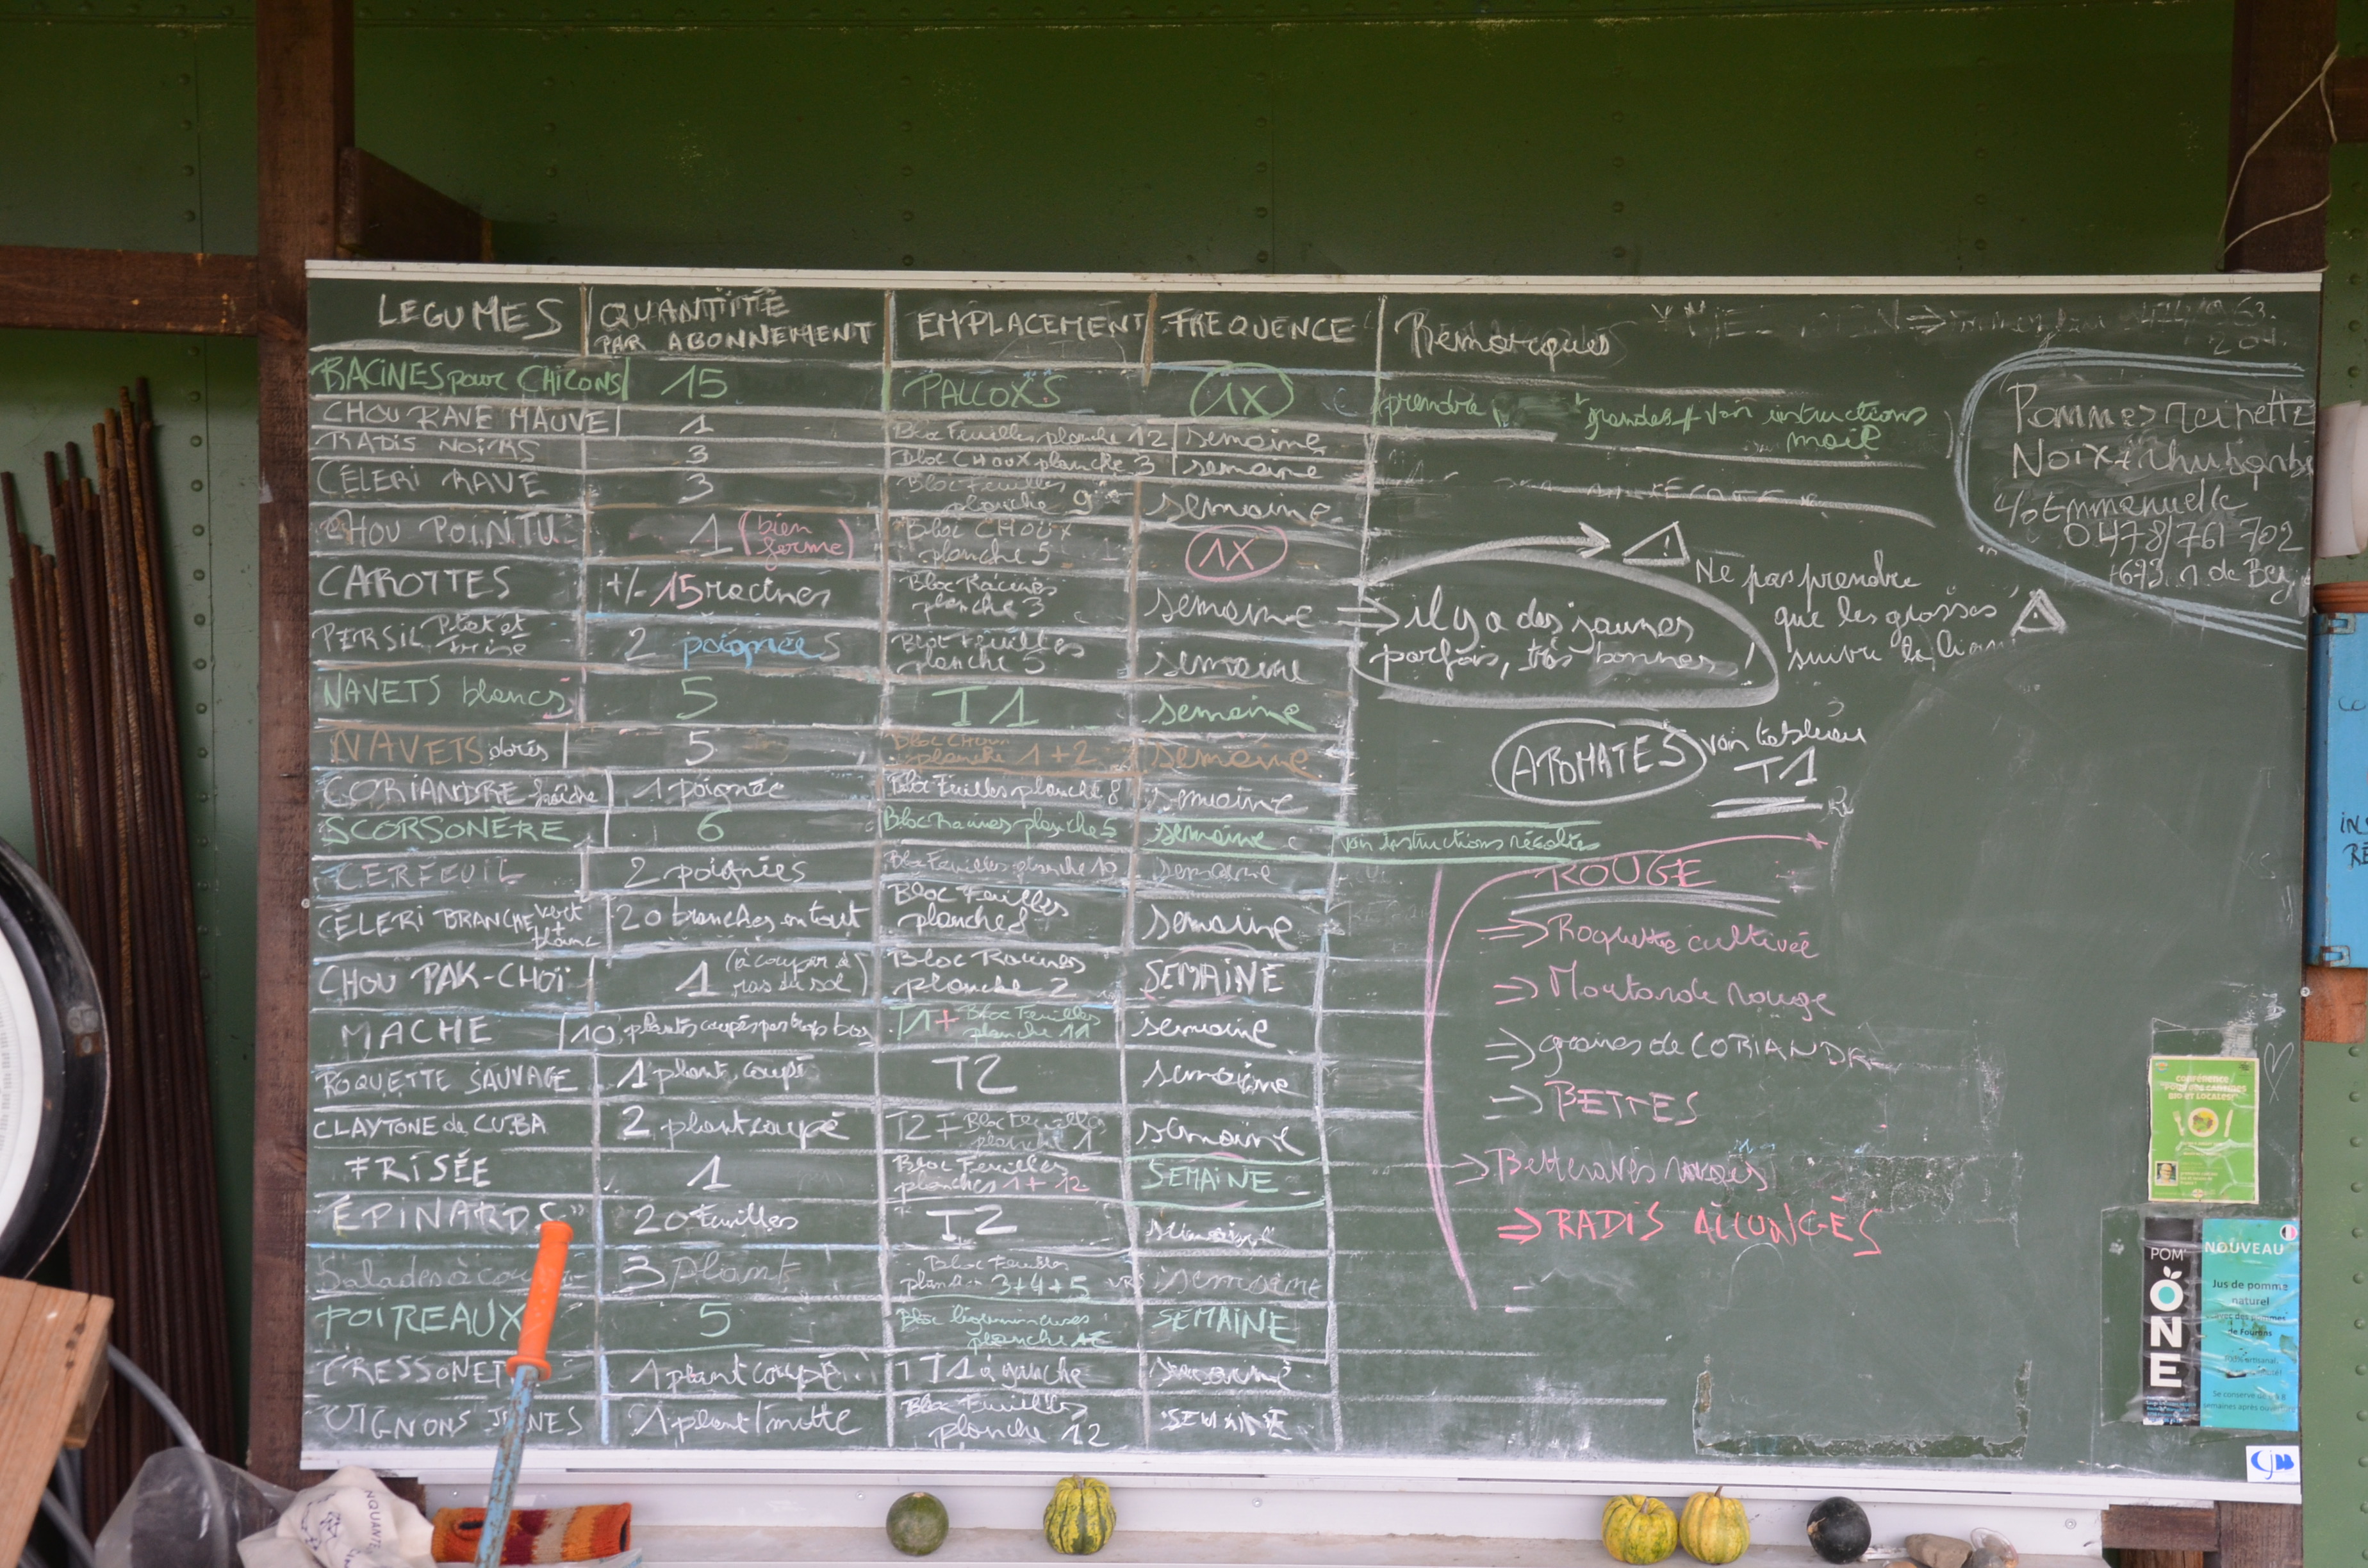 LEGUMES QUANTITÉ PAR ABONNEMENT EMPLACEMENT FREQUENCE Remarques
RACINES pour CHICONS 15 PALLOXS 1X prendre grandes voir instructions mail
CHOU RAVE MAUVE 1 Bloc Feuilles planche 12 semaine
RADIS NOIRS 3 Bloc CHOUX planche 3 semaine
CÉLERI RAVE 3 Bloc Feuilles planche 9 semaine
CHOU POINTU 1 (bien ferme) Bloc CHOUX planche 5 1X
CAROTTES +/- 15 racines Bloc Racines planche 3 semaine ⇒ il y a des jaunes parfois, très bonnes !
PERSIL Plat et frisé 2 poignées Bloc Feuilles planche 5 semaine
NAVETS blancs 5 T1 semaine
NAVETS dorés 5 Bloc Choux planche 1+2 semaine
CORIANDRE fraîche 1 poignée Bloc Feuilles planche 8 semaine
SCORSONÈRE 6 Bloc Racines planche 5 semaine voir instructions récoltes
CERFEUIL 2 poignées Bloc Feuilles planche 10 semaine
CÉLERI BRANCHE vert + blanc 20 branches en tout Bloc Feuilles planche 8 semaine
CHOU PAK-CHOÏ 1 (à couper à ras du sol) Bloc Racines planche 2 SEMAINE
MACHE 10 plants coupés pas trop bas T1 + Bloc Feuilles planche 11 semaine
ROQUETTE SAUVAGE 1 plant coupé T2 semaine
CLAYTONE de CUBA 2 plant coupé T2 + Bloc Feuilles planche 1 semaine
FRISÉE 1 Bloc Feuilles planches 1+12 SEMAINE
ÉPINARDS 20 feuilles T2 semaine
Salades à 3 plants Bloc Feuilles planche 3+4+5 semaine
POIREAUX 5 Bloc légumineuses planche SEMAINE
CRESSONET 1 plant coupé T1 à gauche semaine
OIGNONS JEUNES 1 plant/motte Bloc Feuilles planche 12 SEMAINE
Ne pas prendre
que les grosses
suivre la
AROMATES voir tableau
T1
ROUGE
⇒ Roquette cultivée
⇒ Moutarde rouge
⇒ graines de CORIANDRE
⇒ BETTES
⇒ Betteraves rouges
⇒ RADIS ALLONGÉS
Pommes reinette
Noix + rhubarbe
c/o Emmanuelle
0478/761 702
conférence
BIO ET LOCALES!
POM'
ÔNE
NOUVEAU
Jus de pomme
naturel
de Fourons